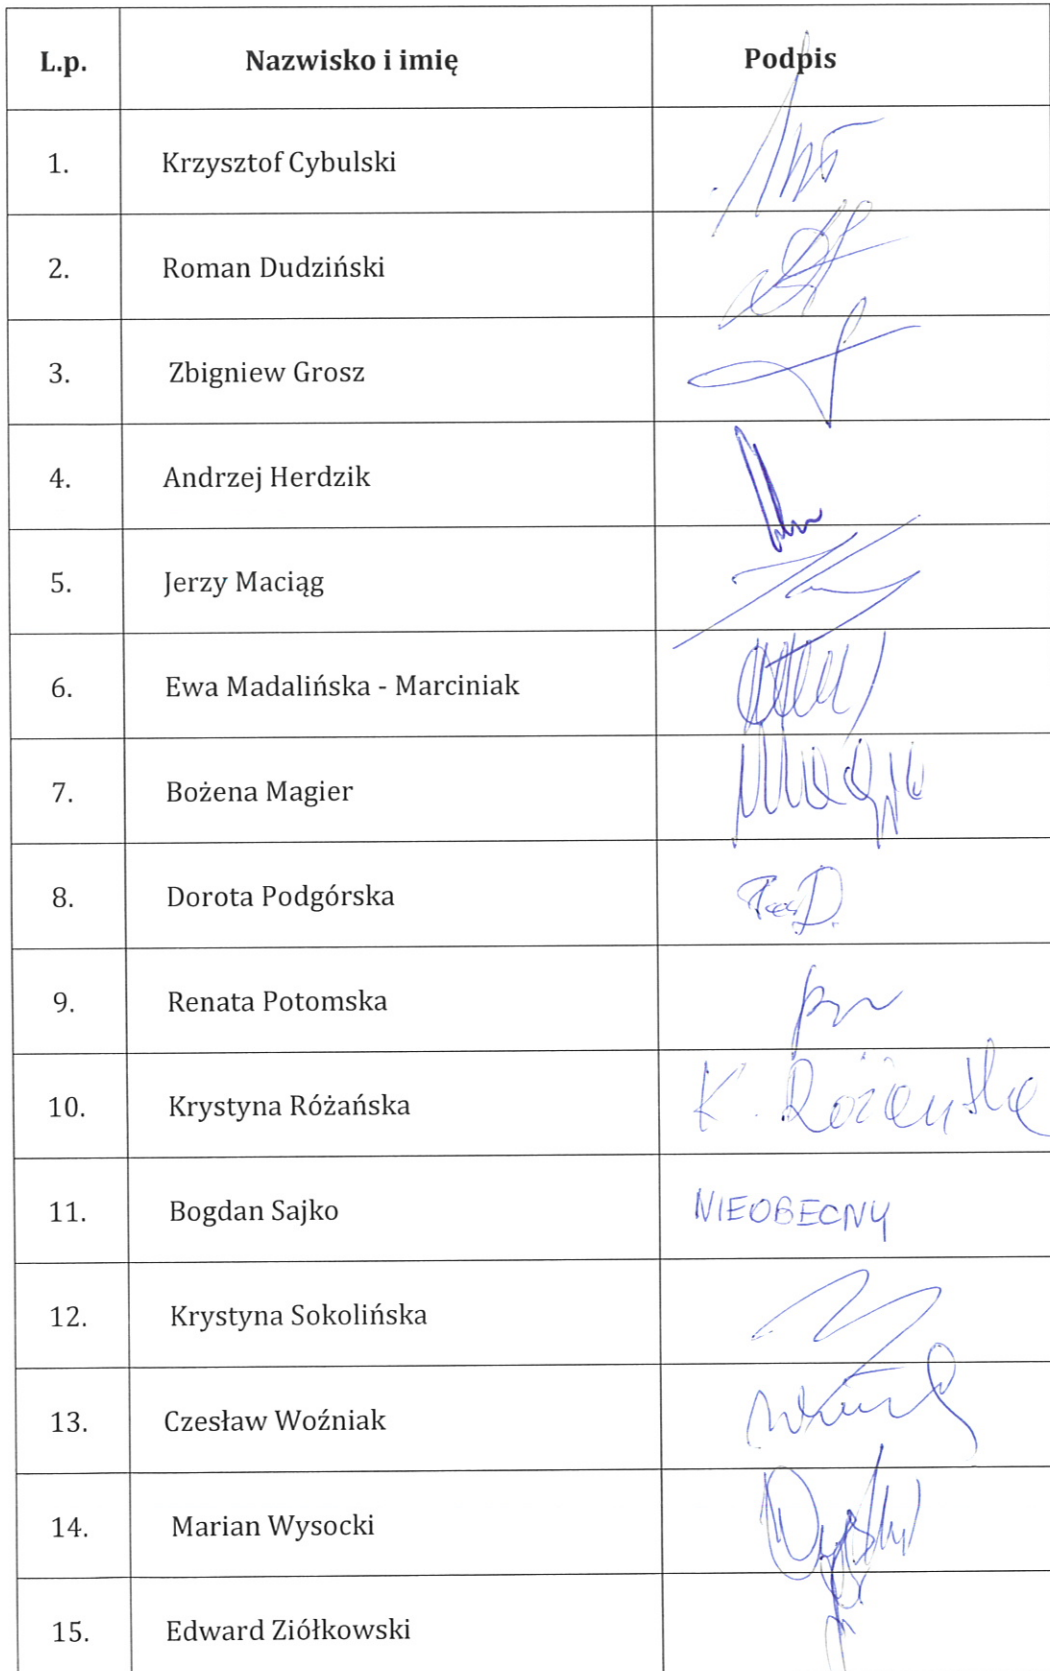 L.p. Nazwisko i imię Podpis
1. Krzysztof Cybulski
2. Roman Dudziński
3. Zbigniew Grosz
4. Andrzej Herdzik
5. Jerzy Maciąg
6. Ewa Madalińska - Marciniak
7. Bożena Magier
8. Dorota Podgórska
9. Renata Potomska
10. Krystyna Różańska K. Różańska
11. Bogdan Sajko NIEOBECNY
12. Krystyna Sokolińska
13. Czesław Woźniak
14. Marian Wysocki
15. Edward Ziółkowski